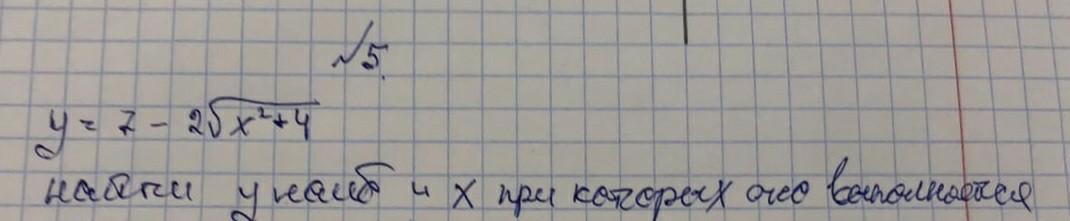 №5.
y = 7 - 2√x²+4
найти y наиб и x при которых оно выполняется